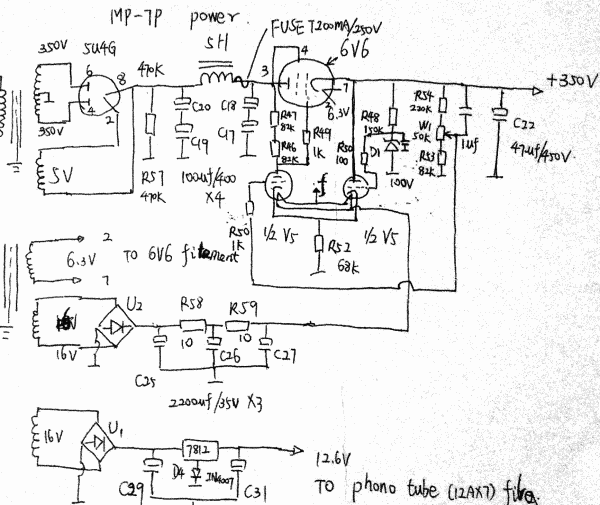 MP-7P power
FUSE T200MA/250V
5H
6V6
350V
5U4G
470K
3
4
7
6
8
4
2
+350V
350V
C20
C18
C19
C17
R47
82K
R46
82K
R49
1K
6.3V
R48
150K
R50
100
D1
100V
R54
220K
W1
50K
R53
82K
1uf
C22
47uf/450V
5V
R57
470K
100uf/400
X4
R50
1K
1/2 V5
1/2 V5
R52
68K
2
6.3V
TO 6V6 filement
7
U2
R58
R59
10
10
16V
C25
C26
C27
2200uf/35V X3
U1
16V
7812
12.6V
D4
IN4007
C29
C31
TO phono tube (12AX7)